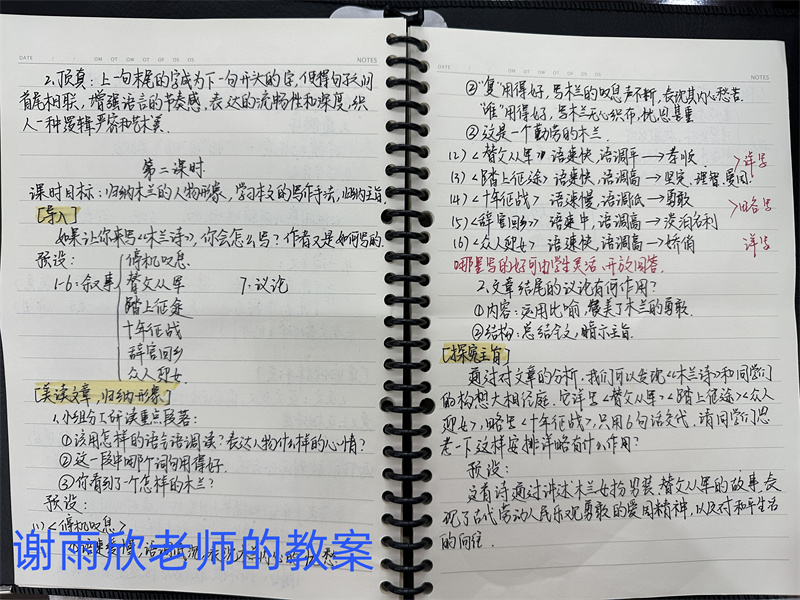 DATE
NOTES
2、顶真：上一句末尾的字成为下一句开头的字，使得句子之间
首尾相联，增强语言的节奏感，表达的流畅性和深度，给
人一种逻辑严密和艺术美.
第二课时
课时目标：归纳木兰的人物形象，学习本文的写作手法，归纳主旨.
[导入]
如果让你来写《木兰诗》，你会怎么写？作者又是如何写的.
预设：
1-6：叙事
停机叹息
替父从军
踏上征途
十年征战
辞官回乡
众人迎女.
7.议论
[美读文章，归纳形象]
1.小组分工研读重点段落：
①该用怎样的语言语调读？表达人物什么样的心情？
②这一段中哪个词句用得好.
③你看到了一个怎样的木兰？
预设：
(1)<停机叹息>
谢雨欣老师的教案
DATE
NOTES
②"复"用得好，写木兰的叹息声不断，表现其内心愁苦.
"唯"用得好，写木兰无心织布，忧思甚重
③这是一个勤劳的木兰.
(2)<替父从军> 语速快，语调平→孝顺.
(3)<踏上征途> 语速快，语调高→坚定、理智、爱国.
详写
(4)<十年征战> 语速慢，语调低→勇敢
(5)<辞官回乡> 语速中，语调高→淡泊名利
略写
(6)<众人迎女> 语速快，语调高→娇俏
详写
哪里写的好可由学生灵活、开放回答.
2.文章结尾的议论有何作用？
①内容：运用比喻，赞美了木兰的勇敢.
②结构：总结全文，暗示主旨.
[探究主旨]
通过对文章的分析，我们可以发现《木兰诗》和同学们
的构想大相径庭.它详写<替父从军><踏上征途><众人
迎女>，略写<十年征战>，只用6句话交代.请同学们思
考一下这样安排详略有什么作用？
预设：
这首诗通过讲述木兰女扮男装，替父从军的故事，表
现了古代劳动人民乐观勇敢的爱国精神，以及对和平生活
的向往.